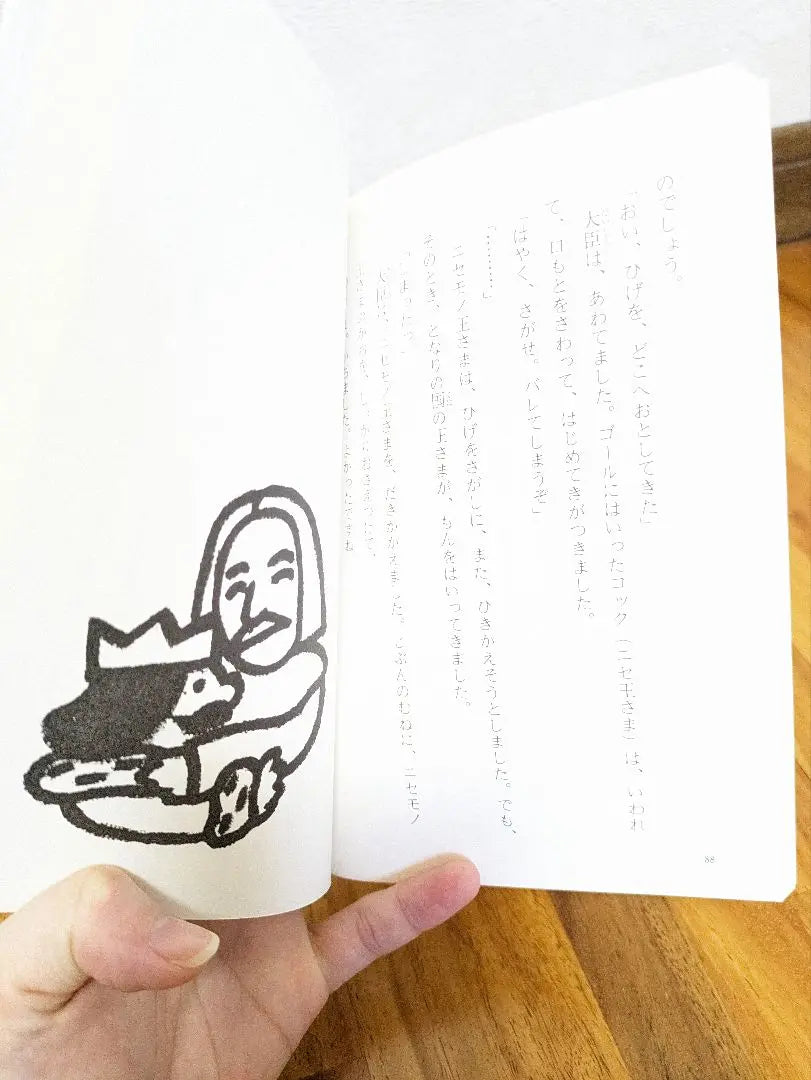 のでしょう。
「おい、ひげを、どこへおとしてきた」
大臣は、あわてました。ゴールにはいったコック（ニセ王さま）は、いわれ
て、口もとをさわって、はじめてきがつきました。
「はやく、さがせ。バレてしまうぞ」
「…………」
ニセモノ王さまは、ひげをさがしに、また、ひきかえそうとしました。でも、
そのとき、となりの国の王さまが、もんをはいってきました。
「しまったっ」
大臣は、ニセモノ王さまを、だきかかえました。じぶんのむねに、ニセモノ
王さまのかおを、しっかりおさえつけて、
88